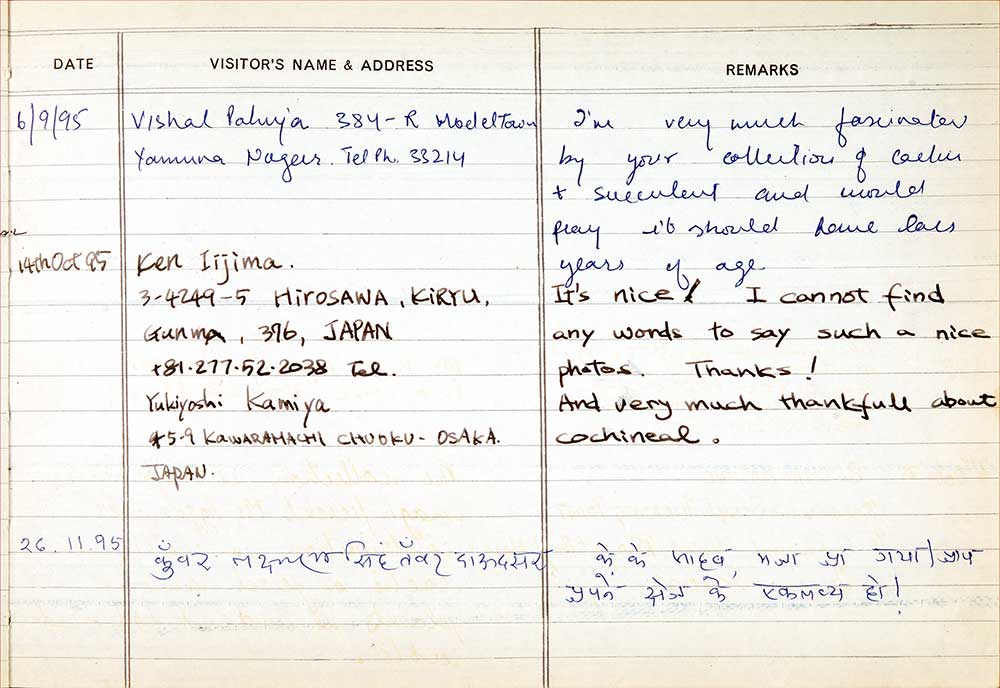 DATE VISITOR'S NAME & ADDRESS REMARKS
6/9/95 Vishal Pahuja 384-R Model Town
Yamuna Nagar. Tel Ph. 33214
I'm very much fascinated
by your collection of cactus
+ succulent and would
pray it should have
years of age
14th Oct 95 Ken Iijima.
3-4249-5 HIROSAWA, KIRYU,
Gunma, 376, JAPAN
+81-277-52-2038 Tel.
Yukiyoshi Kamiya
5-9 KAWARAMACHI CHUOKU- OSAKA.
JAPAN.
It's nice! I cannot find
any words to say such a nice
photos. Thanks!
And very much thankfull about
cochineal.
26.11.95 कुंवर सिंह तंवर दाऊदसर
के के साहब, मजा आ गया। आप
अपने क्षेत्र के एकलव्य हो।